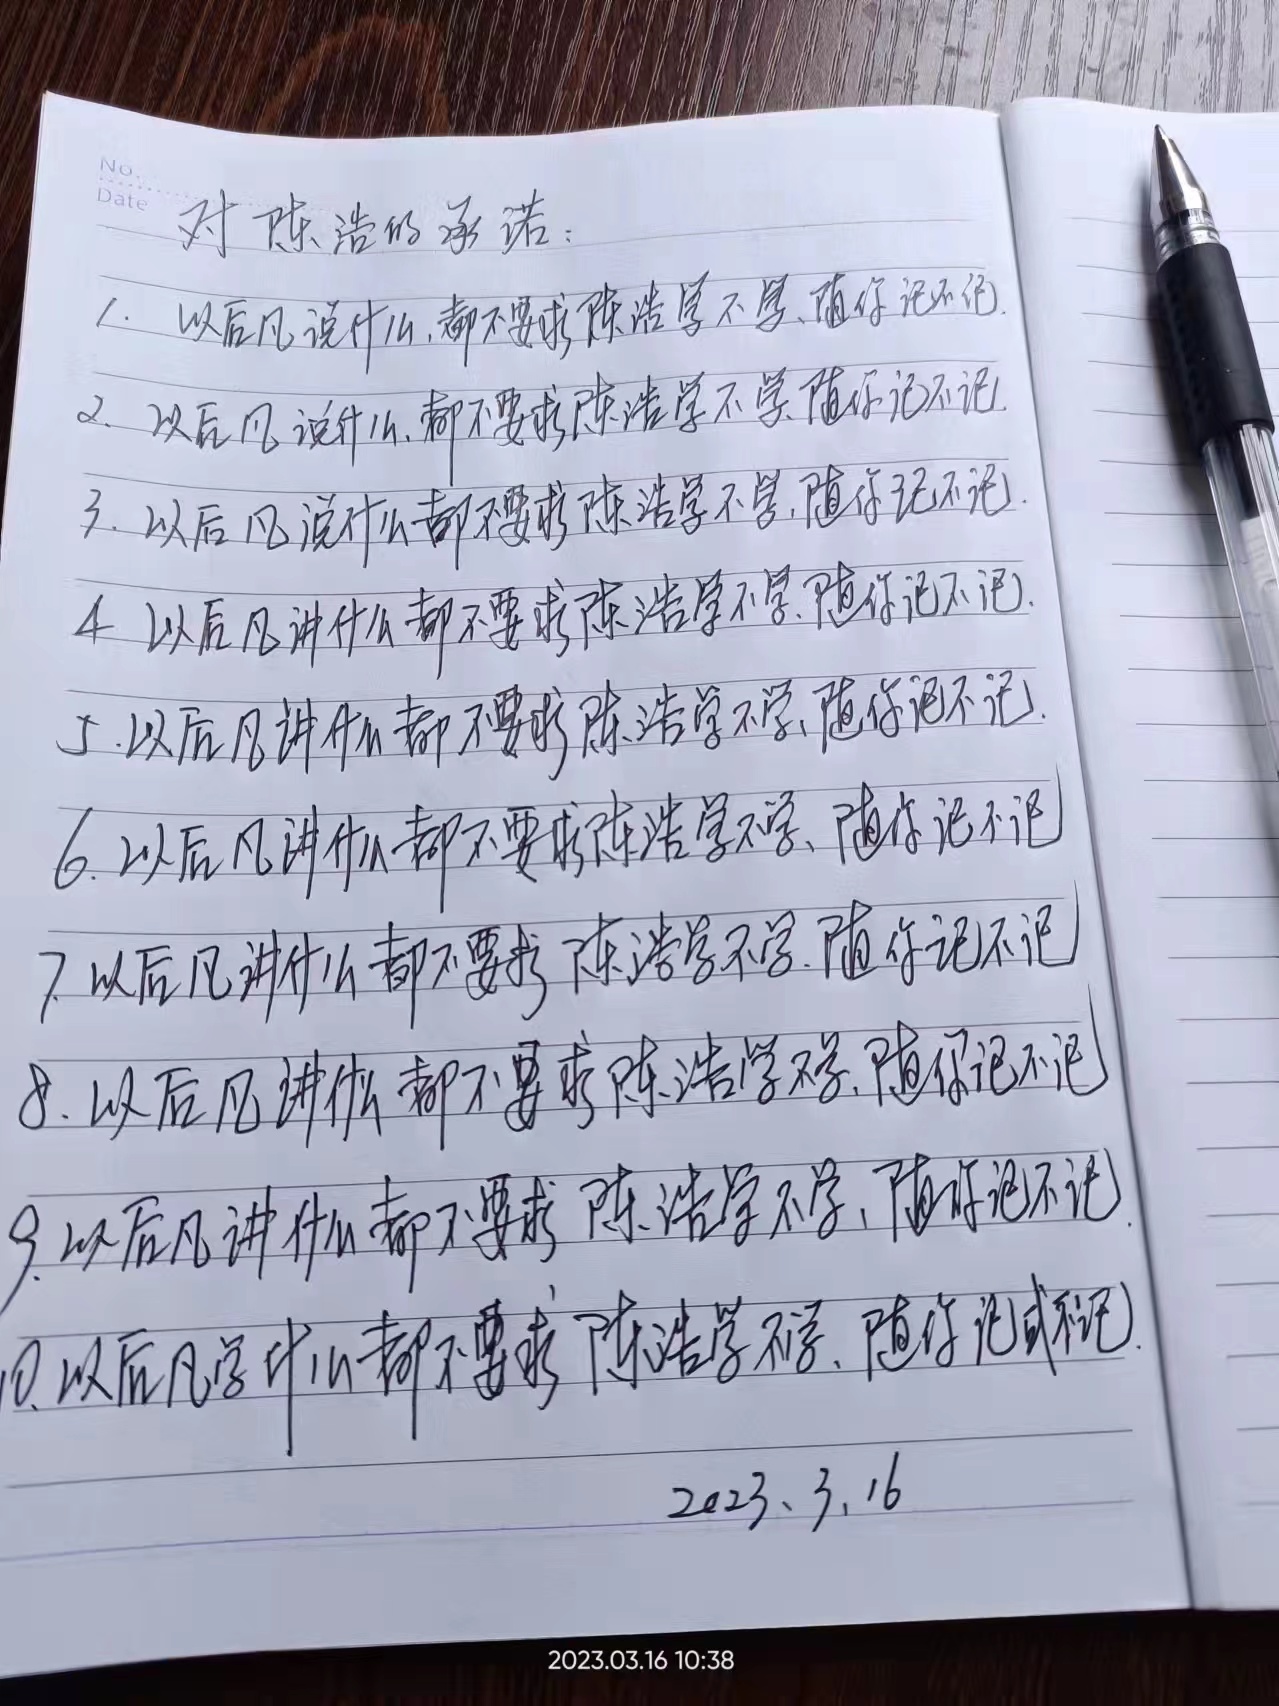 No.
Date
对陈浩的承诺:
1. 以后凡说什么,都不要求陈浩学不学、随你记不记.
2. 以后凡说什么,都不要求陈浩学不学、随你记不记.
3. 以后凡说什么都不要求陈浩学不学,随你记不记.
4 以后凡讲什么都不要求陈浩学不学、随你记不记.
5. 以后凡讲什么都不要求陈浩学不学、随你记不记.
6. 以后凡讲什么都不要求陈浩学不学、随你记不记
7. 以后凡讲什么都不要求陈浩学不学、随你记不记
8. 以后凡讲什么都不要求陈浩学不学、随你记不记
9. 以后凡讲什么都不要求陈浩学不学、随你记不记.
10. 以后凡学什么都不要求陈浩学不学、随你记或不记.
2023、3.16
2023.03.16 10:38